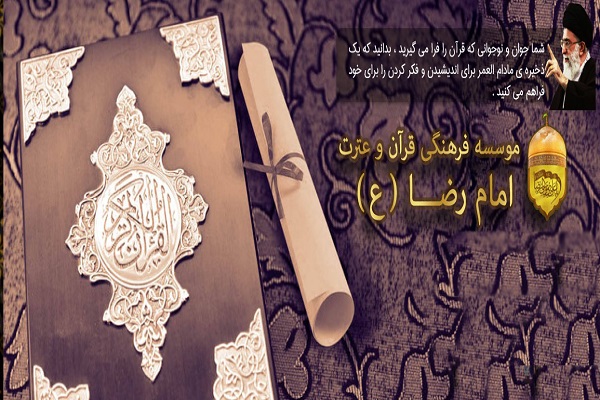 شما جوان و نوجوانی که قرآن را فرا می گیرید ، بدانید که یک
ذخیره ی مادام العمر برای اندیشیدن و فکر کردن را برای خود
فراهم می کنید .
موسسه فرهنگی قرآن و عترت
امام رضا (ع)
القرآن الكريم